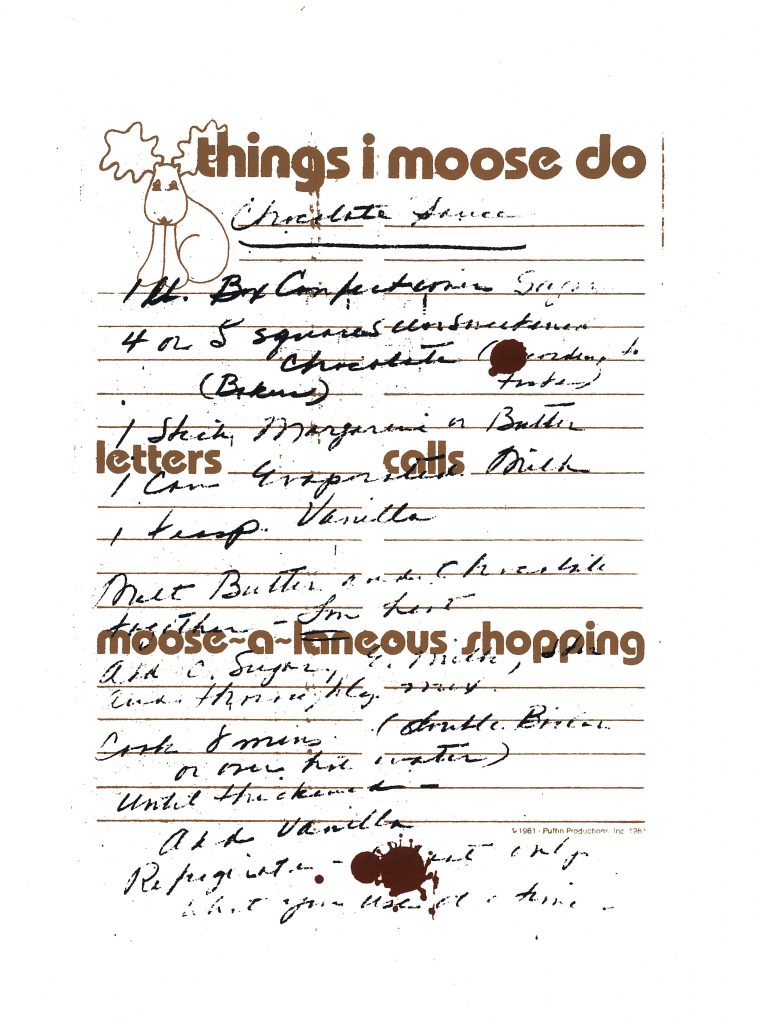 things i moose do
Chocolate Sauce
1 lb. Box Confectioners Sugar
4 or 5 squares Unsweetened
Chocolate (according to
(Bakers) taste)
1 Stick Margarine or Butter
letters calls
1 Can Evaporated Milk
1 teasp. Vanilla
Melt Butter and Chocolate
together - Low heat
moose~a~laneous shopping
Add C. Sugar, E. Milk, Stir
and thoroughly mix.
Cook 8 mins. (double Boiler
or over hot water)
Until thickened -
©1981 - Puffin Productions, Inc. 1981
Add Vanilla
Refrigerate - heat only
what you use at a time -